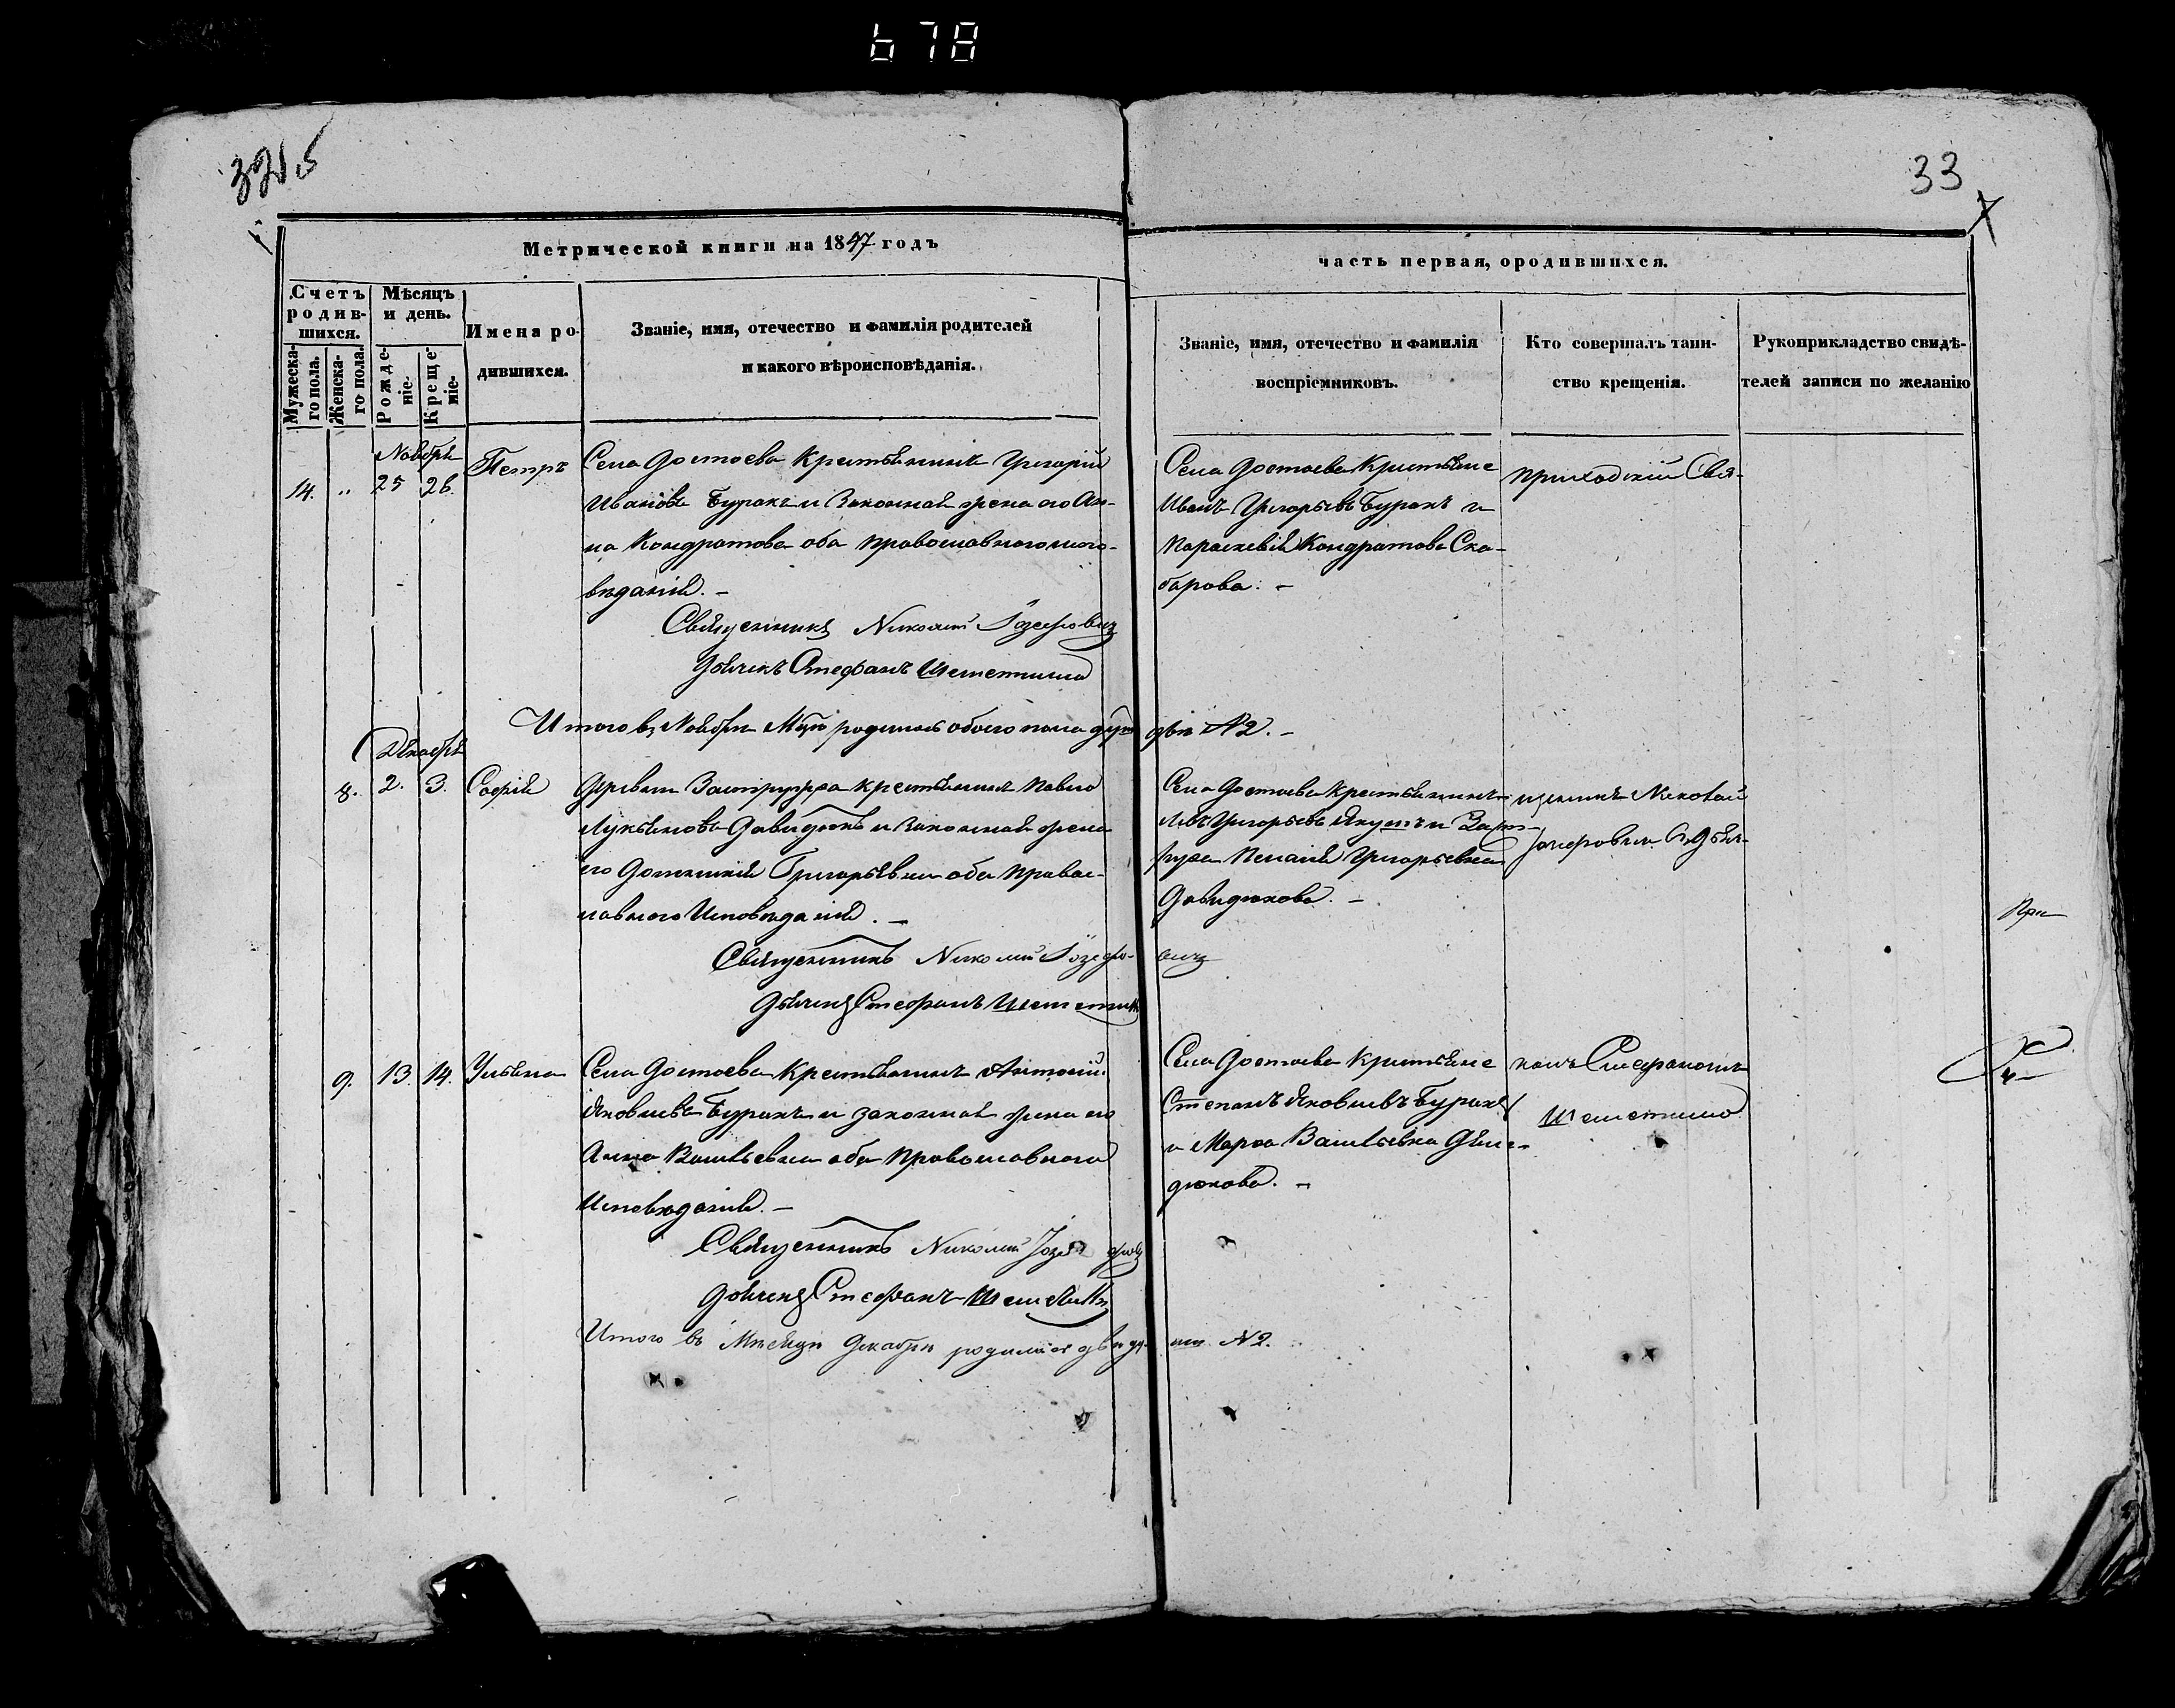 678
33
Метрической книги на 1847 годъ
часть первая, ородившихся.
Счетъ родив-шихся.
Мужеска-го пола.
Женска-го пола.
Мѣсяцъ и день.
Рожде-ніе.
Креще-ніе.
Имена ро-
дившихся.
Званіе, имя, отечество и фамилія родителей
и какого вѣроисповѣданія.
Званіе, имя, отечество и фамилія
воспріемниковъ.
Кто совершалъ таин-
ство крещенія.
Рукоприкладство свидѣ-
телей записи по желанію
Ноябрь
14. „ 25 26. Петръ
Села Достоева Крестьянинъ Григорій
Ивановъ Буракъ и Законная жена его Ан-
на Кондратова оба православного испо-
вѣданія. –
Священникъ Николай Іозефовичъ
Дьячекъ Стефанъ
Села Достоева Крестьяне
Иванъ Григорьевъ Буракъ и
Параскевія Кондратова Ска-
барова. –
приходскій Свя-
Итого въ Ноябрѣ М родилось обоего пола душъ двѣ №2. –
Декабрь
8. 2. 3. Софія
Деревни Застружья крестьянинъ Павелъ
Лукьяновъ Давидюкъ и Законная жена
его Григорьевна оба Правос-
лавного Исповѣданія. –
Священникъ Николай Іозефо-вичъ
Дьячекъ Стефанъ
Села Достоева крестьянинъ
Левъ Григорьевъ и Заст-
Григорьевна
Давидюкова. –
щенникъ Николай
Іозефовичъ съ Дьяч-
При
9. 13. 14. Ульяна
Села Достоева Крестьянинъ Антоній
Яковлевъ Буракъ и законная жена его
Анна Васильевна оба Православного
Исповѣданія. –
Священникъ Николай
Дьячекъ Стефанъ
Села Достоева Крестьяне
Степанъ Яковлевъ Буракъ
и Марѳа Васильевна
дюкова. –
комъ Стефаномъ
Итого въ Мѣсяцѣ Декабрѣ родилось двѣ ду- ши №2.